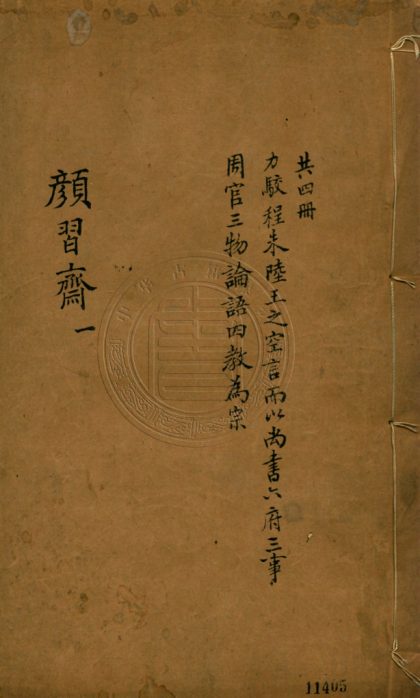 共四冊
力駁程朱陸王之空言而以尚書六府三事
周官三物論語四教為宗
顏習齋 一
11405